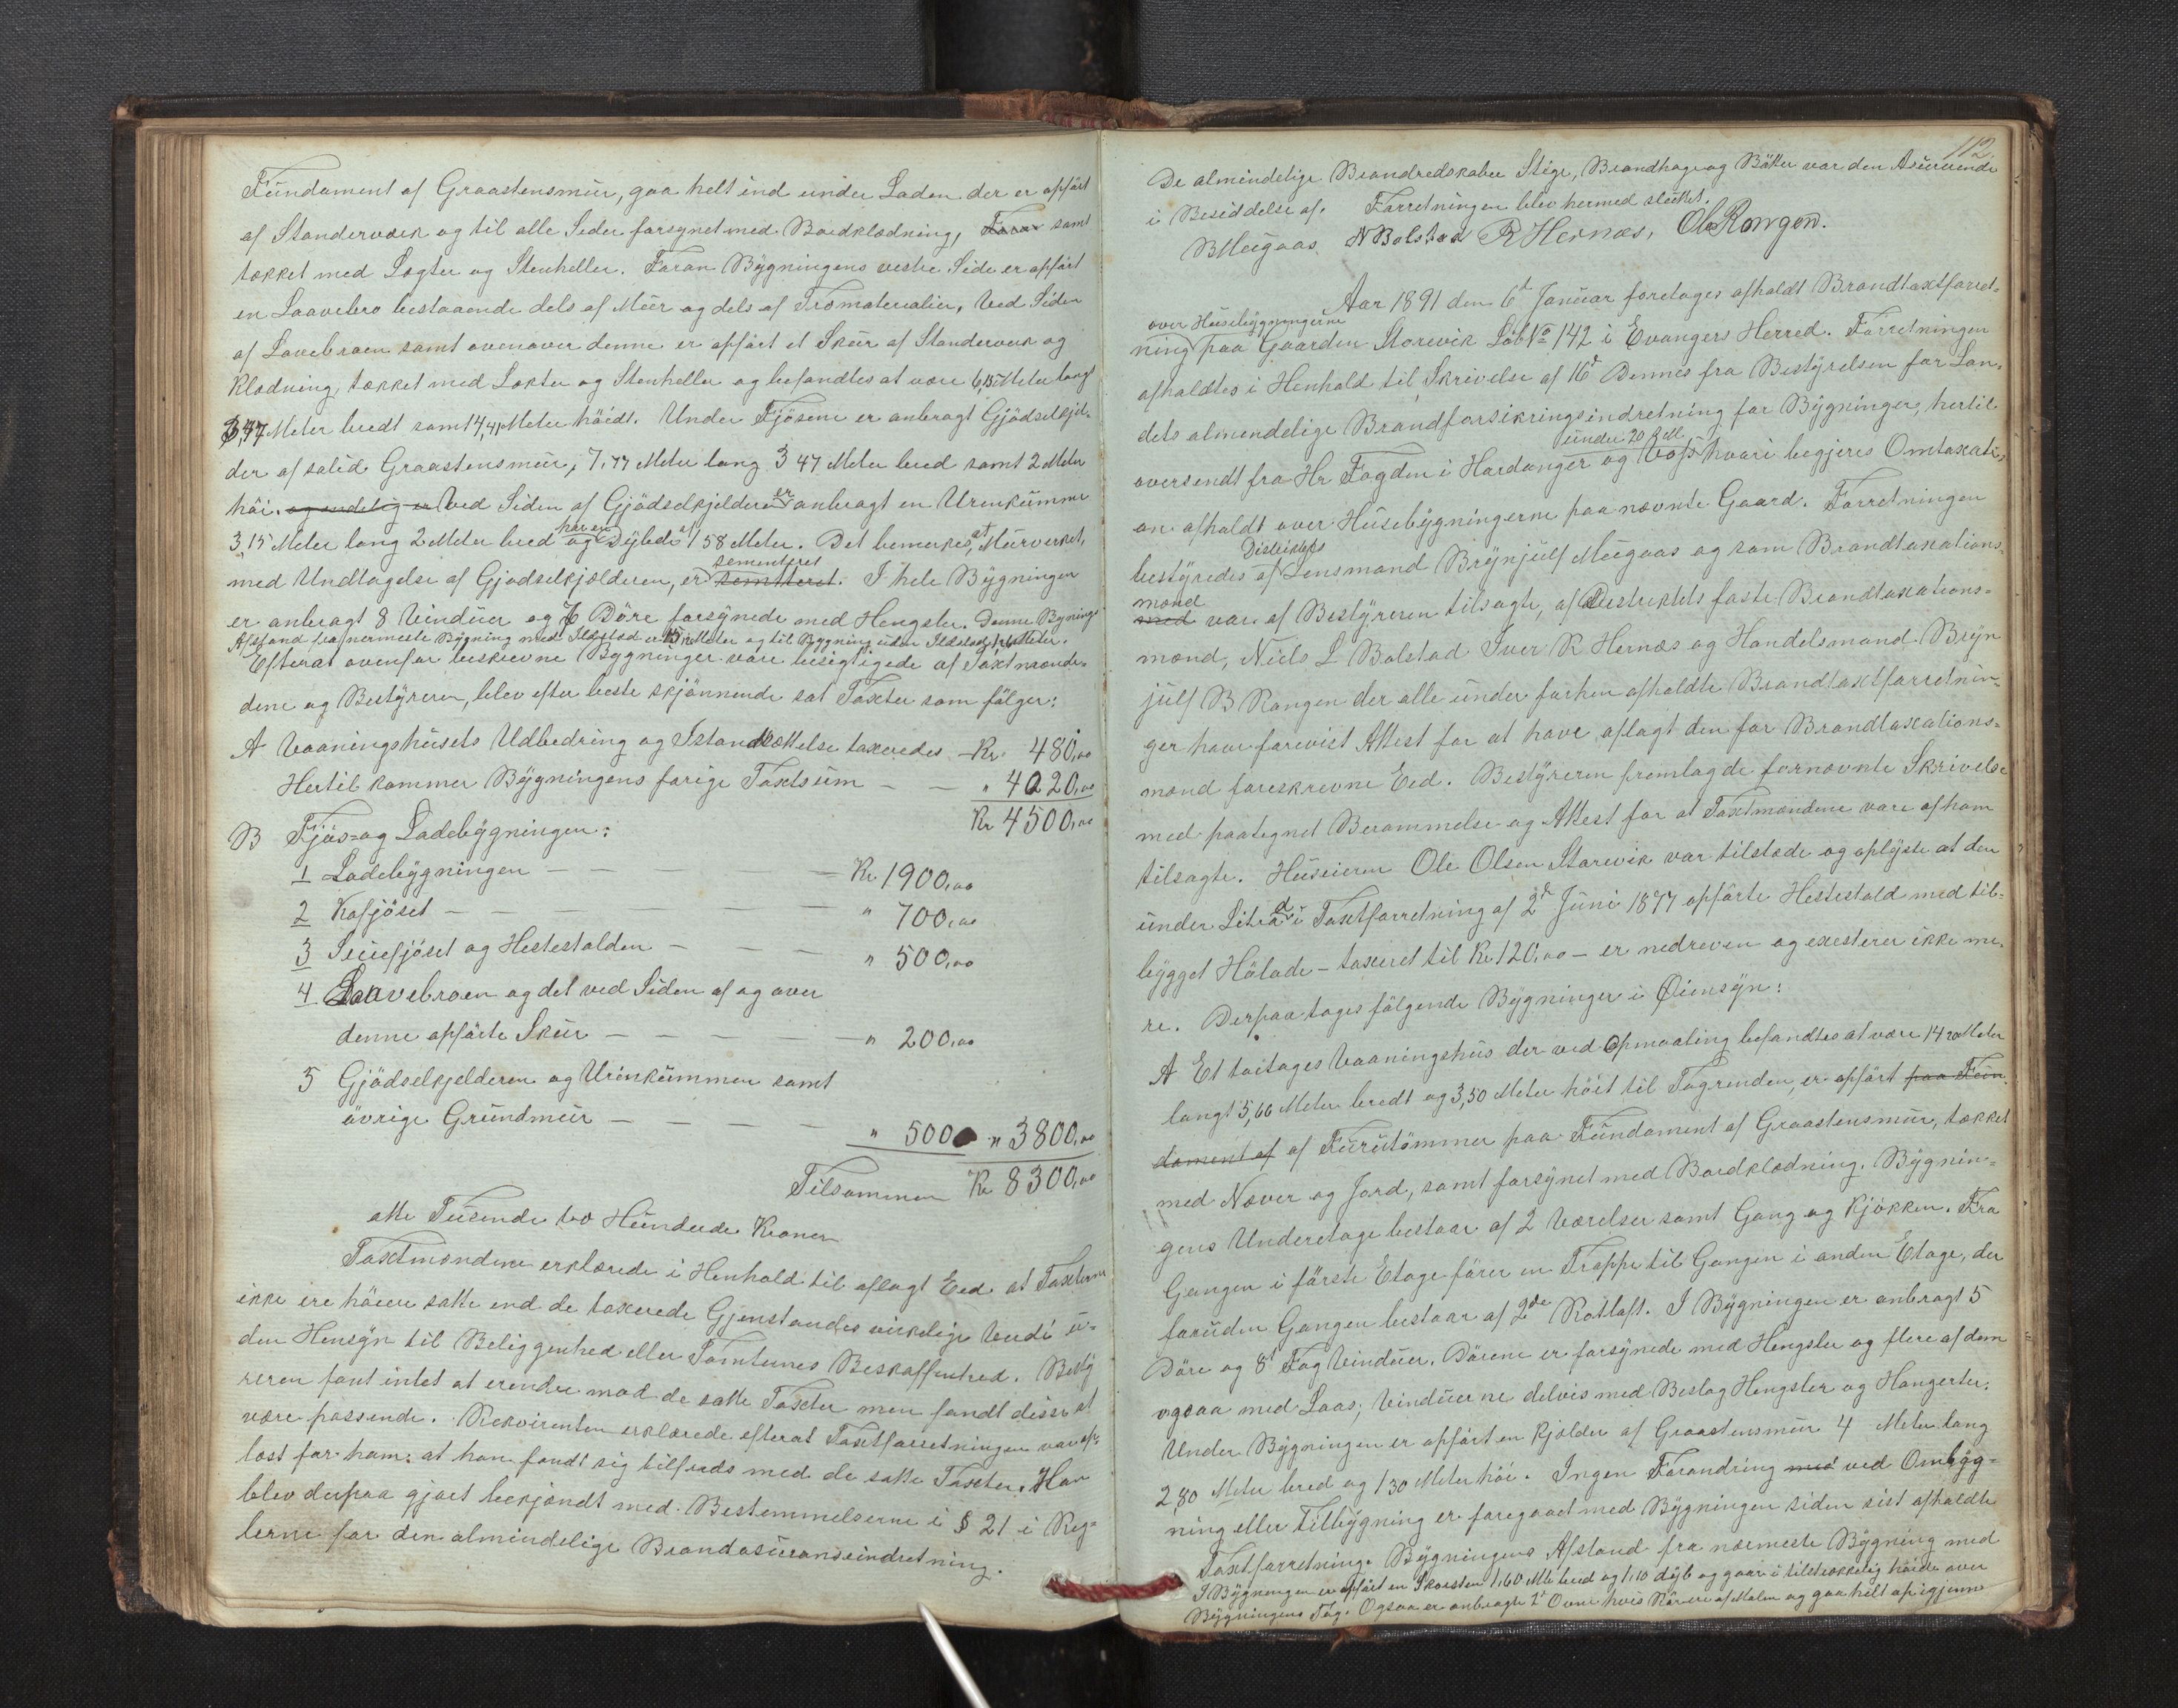 Fundament af Graastensmur, gaa helt ind under Laden der er opført
af Standerværk og til alle Sider forsynet med Bordklædning, Foran samt
tækket med Lægter og Stenheller. Foran Bygningens vestre Side er opført
en Laavebro bestaaende dels af Mur og dels af Træmaterialier. Ved Siden
af Lavebroen samt ovenover denne er opført et Skur af Standerværk og
Klædning, tækket med Lækter og Stenheller og befandtes at være 6,15 Meter langt
3,47 Meter bredt samt 4,41 Meter høidt. Under Fjøsene er anbragt Gjødselkjel-
der af solid Graastensmur, 7,77 Meter lang 3 47 Meter bred samt 2 Meter
høi. og endelig er Ved Siden af Gjødselkjelderen er anbragt en Urenkumme
3 15 Meter lang 2 Meter bred og har en Dybde af 1 58 Meter. Det bemerkes, at Murverket,
med Undtagelse af Gjødselkjælderen, er semtteret sementeret. I hele Bygningen
er anbragt 8 Vinduer og 7 Døre forsynede med Hengsler. Denne Bygnings
Afstand fra nærmeste Bygning med Ildsted er Meter og til Bygning uden Ildsted Meter.
Efterat ovenfor beskrevne Bygninger vare besigtigede af Taxtmænde-
dene og Bestyreren, blev efter beste skjønnende sat Taxter som følger:
A Vaaningshusets Udbedring og Istandsættelse taxeredes - Kr. 480,00
Hertil kommer Bygningens forige Taxtsum - - " 4020,00
Kr 4500,00
B Fjøs- og Ladebygningen:
1 Ladebygningen - - - - Kr 1900,00
2 Kofjøset - - - - - " 700,00
3 Smefjøset og Hestestalden - - - " 500,00
4 Laavebroen og det ved Siden af og over
denne opførte Skur - - - - - " 200,00
5 Gjødselkjelderen og Urinkummen samt
øvrige Grundmur - - - - " 500 " 3800,00
Tilsammen Kr 8300,00
otte Tusende tre Hundrede Kroner
Taxtmændene erklærede i Henhold til aflagt Eed at Taxterne
ikke ere høiere satte end de taxerede Gjenstandes virkelige Verdi u-
den Hensyn til Beliggenhed eller Tomternes Beskaffenhed. Besty
reren fant intet at erendre mod de satte Taxter men fandt disse at
være passende. Rekvirenten erklærede efterat Taxtforretningen var op-
læst for ham: at han fandt sig tilfreds med de satte Taxter. Han
blev derpaa gjort bekjendt med Bestemmelserne i § 21 i Reg-
lerne for den almindelige Brandasuranseindretning.
112
De almindelige Brandredskaber Stige, Brandhage og Bøtter var den Asurerende
i Besiddelse af. Forretningen blev hermed sluttet.
BMugaas. N Bolstad R Hernæs, Ole Rongen.
Aar 1891 den 6t Januar foretages afholdt Brandtaxtforret-
over Husebygningerne
ning paa Gaarden Storevik Løb No 142 i Evangers Herred. Forretningen
afholdtes i Henhold til Skrivelse af 16d Dennes fra Bestyrelsen for Lan-
dets almendelige Brandforsikringsindretning for Bygninger, hertil
under 20
oversendt fra Hr Fogden i Hardanger og Voss hvori begjeres Omtaxati-
on afholdt over Husebygningerne paa nævnte Gaard. Forretningen
Distriktets
bestyredes af Lensmand Brynjulf Mugaas og som Brandtaxations-
mænd
med var af Bestyreren tilsagte, af Distriktets faste Brandtaxations-
mænd, Niels L Bolstad Iver R Hernæs og Handelsmand Bryn
julf B Rongen der alle under forhen afholdte Brandtaxtforretnin-
ger have forevist Attest for at have aflagt den for Brandtaxations-
mænd foreskrevne Eed. Bestyreren fremlagde fornævnte Skrivelse
med paategnet Berammelse og Attest for at Taxtmændene vare af ham
tilsagte. Huseieren Ole Olsen Storevik var tilstede og oplyste at den
under Litra d i Taxtforretning af 2d Juni 1877 opførte Hestestald med til-
bygget Hølade - taxeret til Kr 120,00 - er nedreven og exesterer ikke me-
re. Derpaa toges følgende Bygninger i Øiensyn:
A Et toetages Vaaningshus der ved Opmaaling befandtes at være 14 20 Meter
langt 5,66 Meter bredt og 3,50 Meter høit til Tagrenden, er opført paa Fun-
dament af af Furutømmer paa Fundament af Graastensmur, tækket
med Næver og Jord, samt forsynet med Bordklædning. Bygnin-
gens Underetage bestaar af 2 Værelser samt Gang og Kjøkken. Fra
Gangen i første Etage fører en Trappe til Gangen i anden Etage, der
foruden Gangen bestaar af 2de Rotlaft. I Bygningen er anbragt 5
Døre og 8t Fag Vinduer. Dørene er forsynede med Hengsler og flere af dem
ogsaa med Laas; Vinduerne delvis med Beslag Hengsler og Hangerter.
Under Bygningen er opført en Kjælder af Graastensmur 4 Meter lang
2 80 Meter bred og 1 30 Meter høi. Ingen Forandring med ved Ombyg-
ning eller Tilbygning er foregaaet med Bygningen siden sist afholdte
Taxtforretning. Bygningens Afstand fra nærmeste Bygning med
I Bygningen er opført en Skorsten 1,60 Mtr bred og 1,10 dyb og gaar i tilstrækkelig høide over
Bygningens Tag. Ogsaa er anbragte 2d Ovne hvis Rør ere af Malm og gaa helt op igjennem